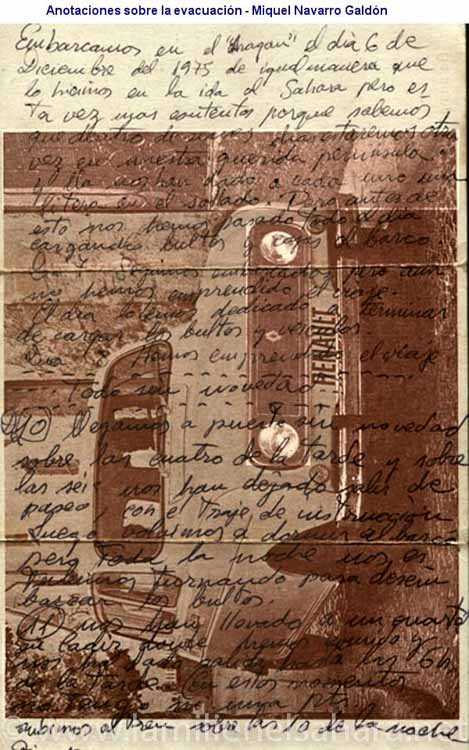 Anotaciones sobre la evacuación - Miquel Navarro Galdón
Embarcamos en el "Aragon" el dia 6 de
Diciembre del 1975 de igual manera que
lo hicimos en la ida al Sahara pero es
ta vez mas contentos porque sabemos
que dentro de unos dias estaremos otra
vez en nuestra querida peninsula
ya nos han dado a cada uno una
litera en el sollado. Pero antes de
esto nos hemos pasado todo el dia
cargando bultos y cosas al barco
Dia 7 Seguimos pero aun
no hemos emprendido el viaje.
El dia lo hemos dedicado a terminar
de cargar los bultos y vehiculos.
Dia Hemos emprendido el viaje
Todo sin novedad
RENAULT
10 Llegamos a puerto sin novedad
sobre las cuatro de la tarde y sobre
las seis nos han dejado salir de
paseo, con el traje de instrucción
Luego volvimos a dormir al barco
pero toda la noche nos es
tuvimos turnando para desem
barcar los bultos.
11 nos han llevado a un cuartel
en Cadiz donde hemos comido y
nos han dado hasta las 6h
de la tarde. En estos momentos
no tengo ni una pts
subimos al tren sobre las 10 de la noche